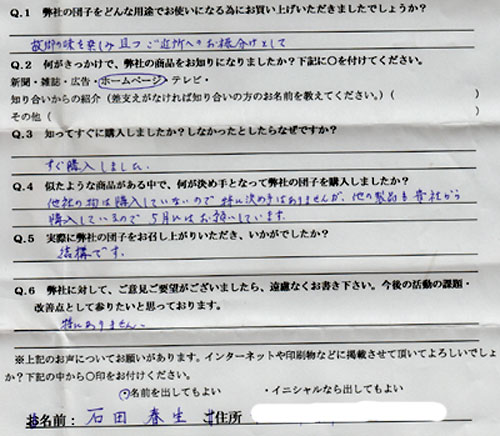 Q.1 弊社の団子をどんな用途でお使いになる為にお買い上げいただきましたでしょうか?
故郷の味を楽しみ且つご近所へのお振分けとして
Q.2 何がきっかけで、弊社の商品をお知りになりましたか?下記に〇を付けてください。
新聞・雑誌・広告・ホームページ・テレビ・
知り合いからの紹介(差支えがなければ知り合いの方のお名前を教えてください。)( )
その他( )
Q.3 知ってすぐに購入しましたか?しなかったとしたらなぜですか?
すぐ購入しました.
Q.4 似たような商品がある中で、何が決め手となって弊社の団子を購入しましたか?
他社の物は購入していないので特に決め手はありませんが、他の製品も貴社から
購入しているので5月にはお願いしています.
Q.5 実際に弊社の団子をお召し上がりいただき、いかがでしたか?
結構です.
Q.6 弊社に対して、ご意見ご要望がございましたら、遠慮なくお書き下さい。今後の活動の課題・
改善点として参りたいと思っております。
特にありません.
※上記のお声についてお願いがあります。インターネットや印刷物などに掲載させて頂いてよろしいでしょ
か?下記の中から〇印をお付けください。
・名前を出してもよい ・イニシャルなら出してもよい
お名前: 石田 春生 ご住所